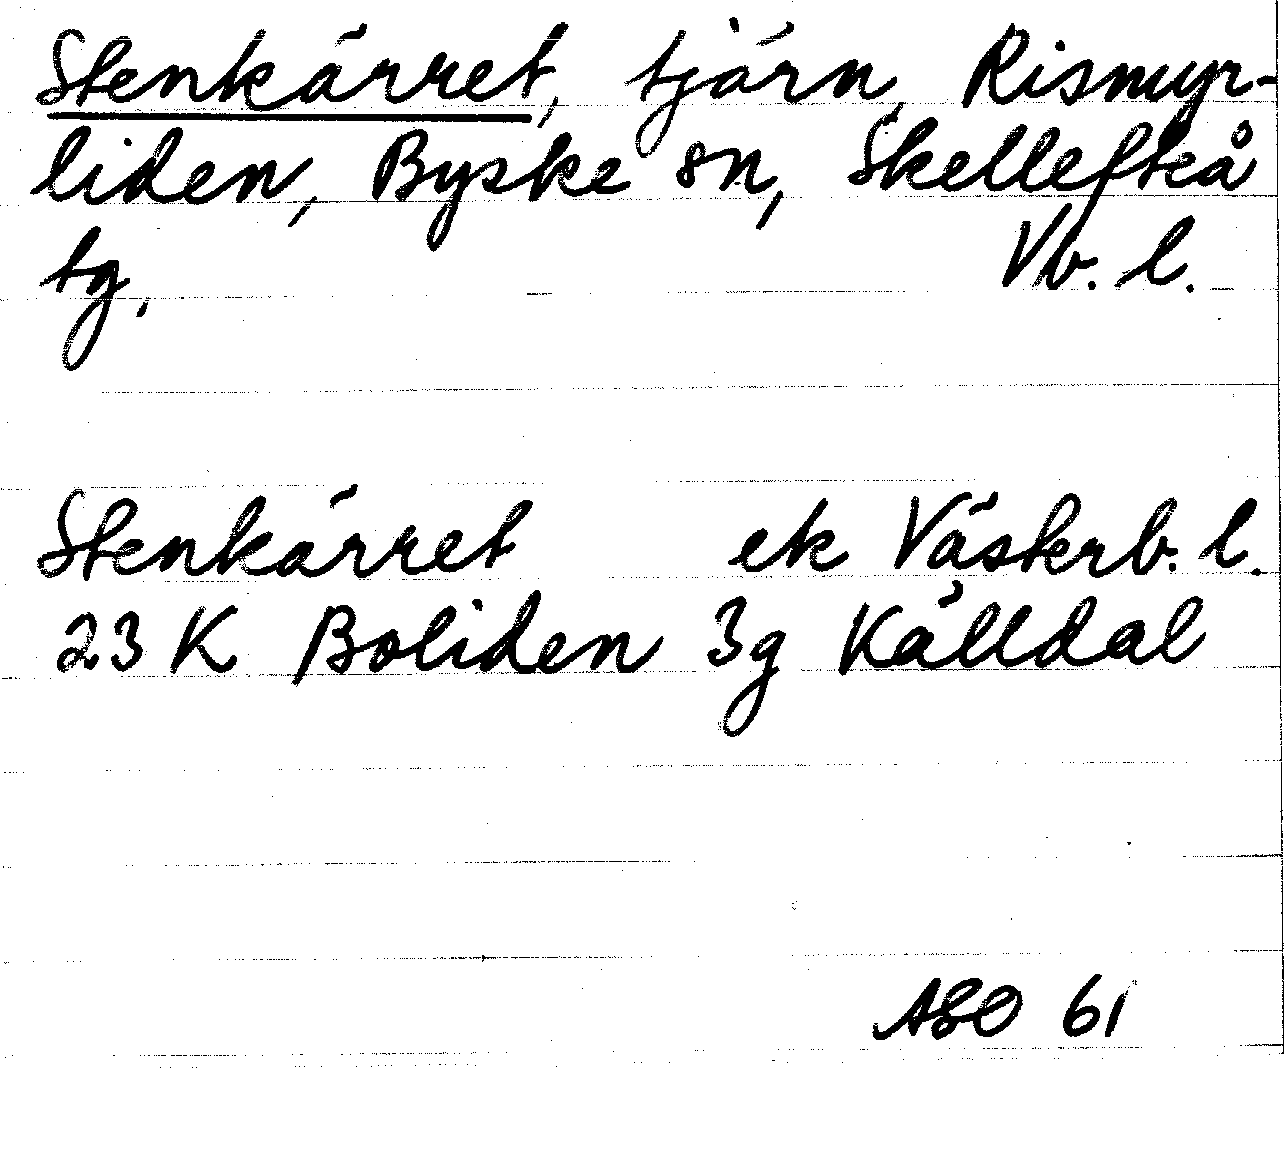 Stenkärret, tjärn, Rismyr-
liden, Byske sn, Skellefteå
tg, Vb. l.
Stenkärret ek Västerb. l.
23 K Boliden 3g Källdal
ASO 61